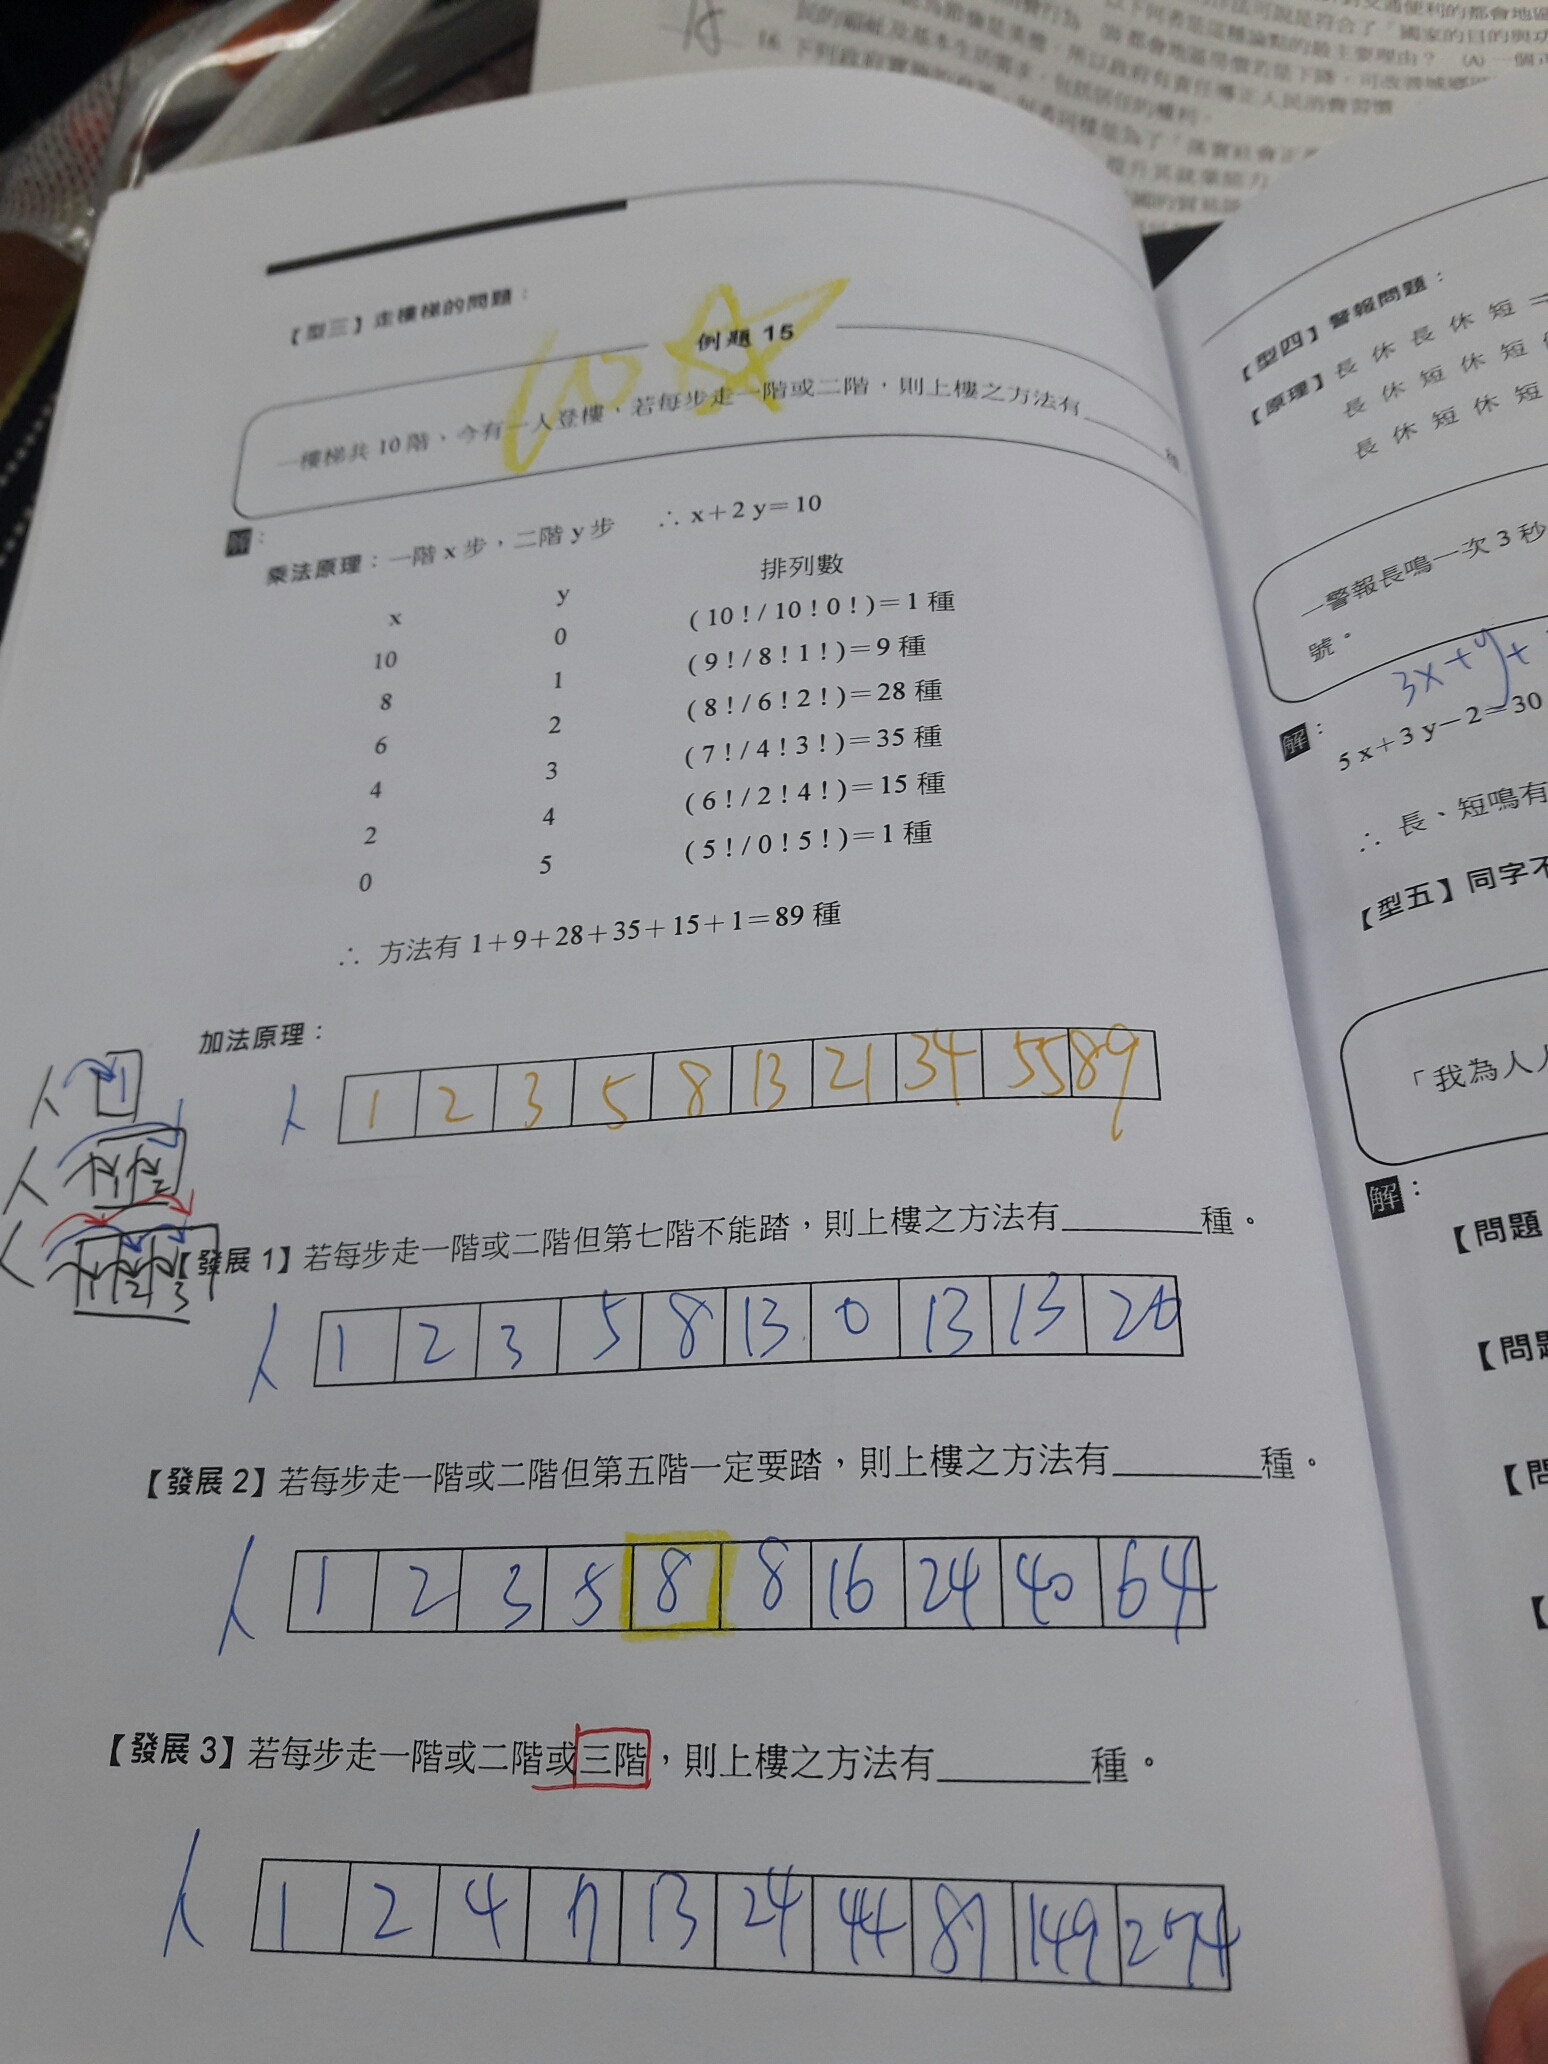 【型三】走樓梯的問題：
例題 15
一樓梯共 10 階，今有一人登樓，若每步走一階或二階，則上樓之方法有________種。
解：
乘法原理：一階 x 步，二階 y 步 ∴ x＋2 y＝10
x y 排列數
10 0 (10！/ 10！0！)＝1 種
8 1 (9！/ 8！1！)＝9 種
6 2 (8！/ 6！2！)＝28 種
4 3 (7！/ 4！3！)＝35 種
2 4 (6！/ 2！4！)＝15 種
0 5 (5！/ 0！5！)＝1 種
∴ 方法有 1＋9＋28＋35＋15＋1＝89 種
加法原理：
人 1
人 1 2
人 1 2 3
人 1 2 3 5 8 13 21 34 55 89
【發展 1】若每步走一階或二階但第七階不能踏，則上樓之方法有________種。
人 1 2 3 5 8 13 0 13 13 26
【發展 2】若每步走一階或二階但第五階一定要踏，則上樓之方法有________種。
人 1 2 3 5 8 8 16 24 40 64
【發展 3】若每步走一階或二階或三階，則上樓之方法有________種。
人 1 2 4 7 13 24 44 81 149 274
【型四】警報問題：
【原理】長 休 長 休 短 ＝
長 休 短 休 短 休
長 休 短 休 短
一警報長鳴一次 3 秒
號。
3x+y+
解：
5 x＋3 y－2＝30
∴ 長、短鳴有
【型五】同字不
「我為人人
解：
【問題
【問題
【問
【
18
國家的目的與功
以下何者是這種論點的最主要理由？ (A) 一個
所以政府有責任導正人民消費習慣